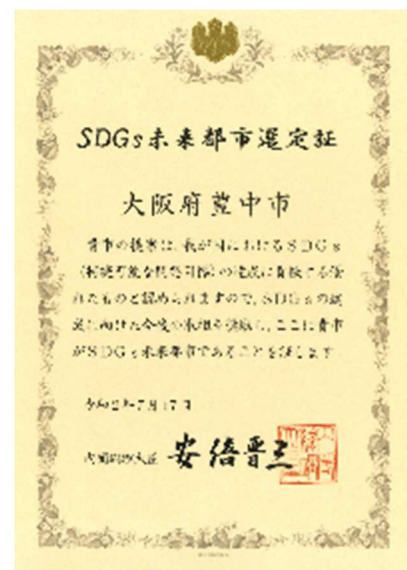 SDGs未来都市選定証
大阪府豊中市
貴市の提案は、我が国におけるSDGs
(持続可能な開発目標)の達成に貢献する優
れたものと認められますので、SDGsの達
成に向けた今後の取組を期待し、ここに貴市
がSDGs未来都市であることを証します
令和2年7月17日
内閣総理大臣 安倍晋三